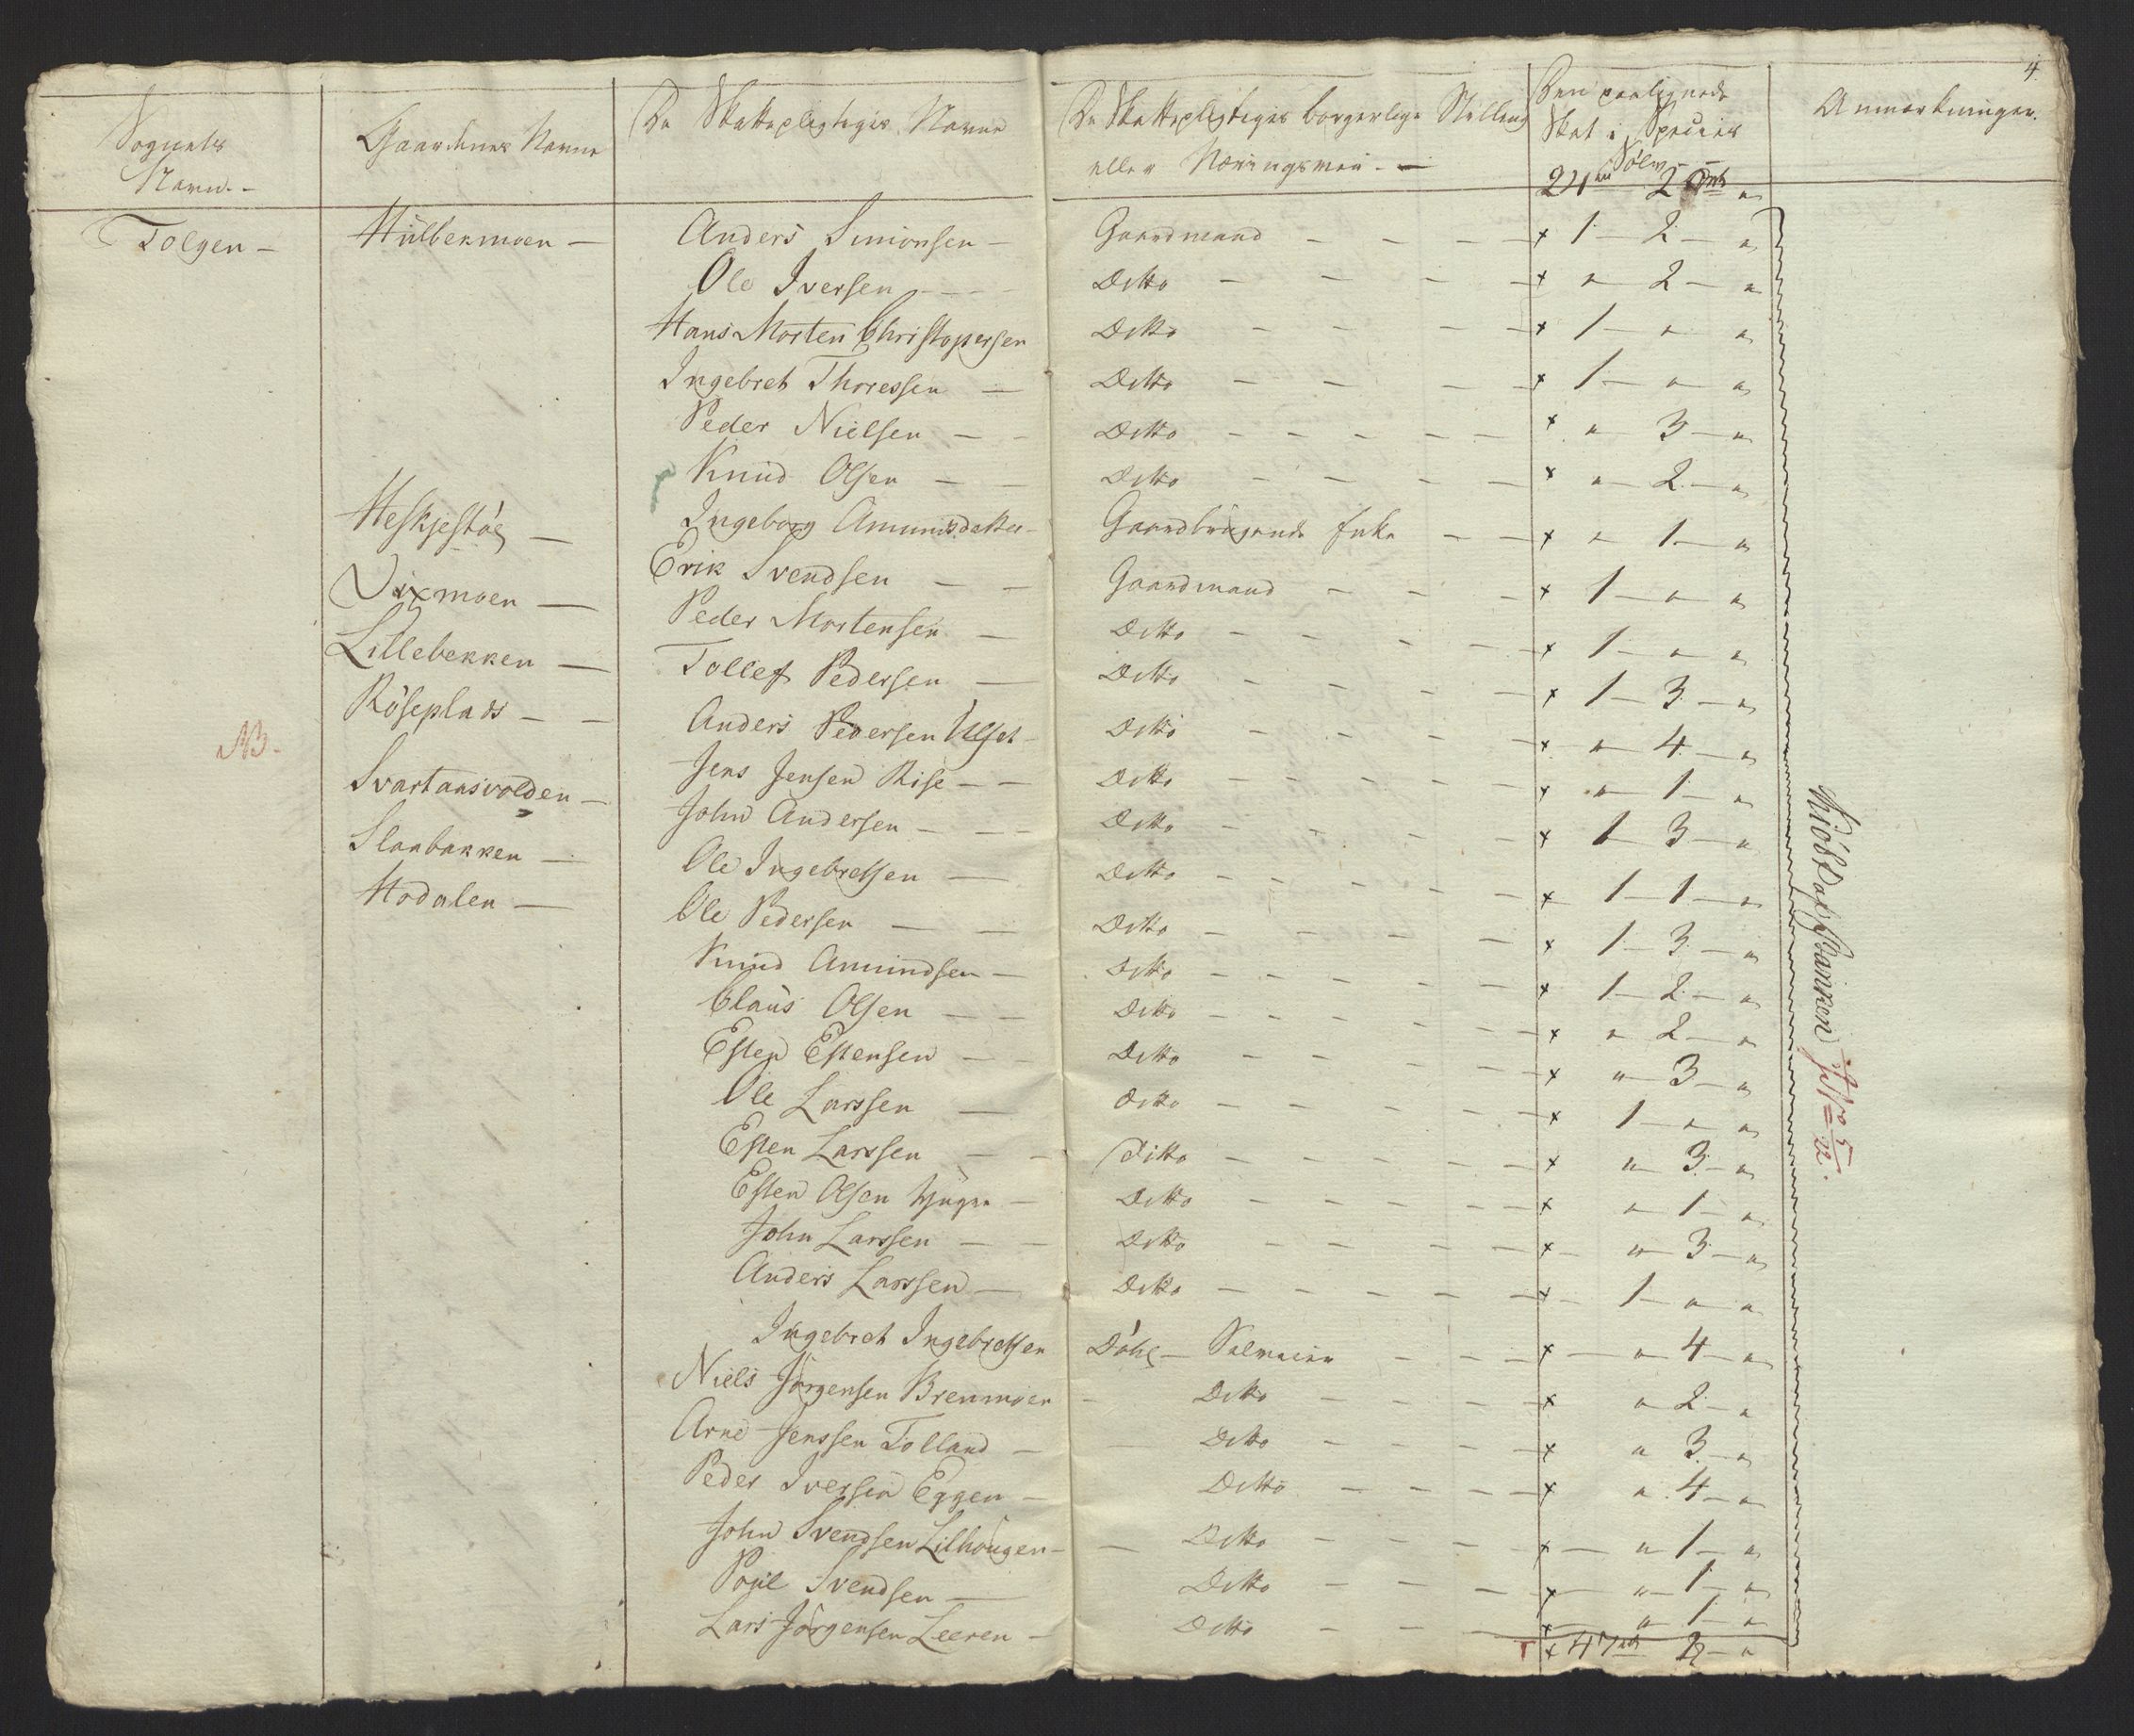 4.
Sognets Navn. -
Gaardenes Navne
De Skattepligtiges Navne
De Skattepligtiges borgerlige Stilling eller Næringsvei. -
Den paalignede Skat i Species Sølv
Anmærkninger.
Tolgen - Hülbekmoen - Anders Simonsen - Gaardmand - - - - x 1 - 2 - "
Ole Iversen - - - Ditto - - - - x " - 2 - "
Hans Morten Christopersen Ditto - - - - x 1 - " "
Ingebret Thoressen - Ditto - - - - x 1 - " - "
Peder Nielsen - - Ditto - - - - - x " 3 - "
Knud Olsen - - Ditto - - - - x " - 2 - "
Heskjestøe - Ingeborg Amundsdatter - Gaardbrugende Enke - - x " - 1 - "
Vixmoen - Erik Svendsen - - Gaardmand - - - x 1 - " - "
Lillebekken - Peder Mortensen - Ditto - - - - x 1 - " - "
Röseplads - - Tollef Pedersen - Ditto - - - - x 1 - 3 - "
NB. Anders Pedersen Ulset - Ditto - - - - x " - 4 - "
Svartaasvolden - Jens Jensen Rise - - Ditto - - - - - x " - 1 - "
Slaabakken - John Andersen - - - Ditto - - - x 1 - 3 - "
Hodalen - Ole Ingebretsen - Ditto - - - - - x 1 - 1 - "
Ole Pedersen - - Ditto - - - - x 1 - 3 - "
Knud Amundsen - Ditto - - - - - x 1 - 2 - "
Claus Olsen - - Ditto - - - - - x " - 2 - "
Esten Estensen - - Ditto - - - - x " - 3 - "
Ole Larssen - Ditto - - - - - x 1 - " - "
Esten Larssen - - Ditto - - - - - x " - 3 - "
Esten Olsen yngre - Ditto - - - - - x " - 1 - "
John Larssen - - Ditto - - - - x " - 3 - "
Anders Larssen - Ditto - - - - - x 1 - " - "
Ingebret Ingebretsen Ditto - - - x " - 4 - "
Niels Jörgensen Brenmoen - Ditto - - - - x " 2 - "
Arne Jenssen Tolland - - Ditto - - - - x " 3 - "
Peder Iversen Eggen - Ditto - - - - x " 4 - "
John Svendsen Lilhougen - - Ditto - - - x - " 1 - "
Poul Svendsen - Ditto - - - x - " 1 - "
Lars Jörgensen Leeren - Ditto - - - x - " 1 - "
x 47 2 - "